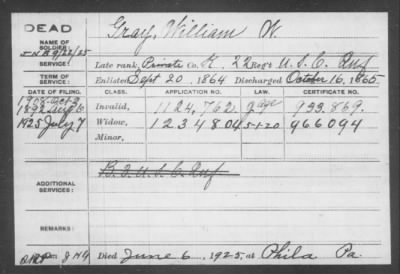 DEAD
Gray, William W.
NAME OF SOLDIER:
9/22/25
Late rank, Private Co. K, 22 Reg't U.S.C. Inf
TERM OF SERVICE:
Enlisted Sept 20, 1864 Discharged October 16, 1865
DATE OF FILING. CLASS. APPLICATION NO. LAW. CERTIFICATE NO.
Invalid, 1124,762 933,869.
1925 July 7 Widow, 1234804 5-1-20 966094
Minor,
ADDITIONAL SERVICES:
B. I U.S.C. Inf
REMARKS:
Died June 6, 1925, at Phila Pa.